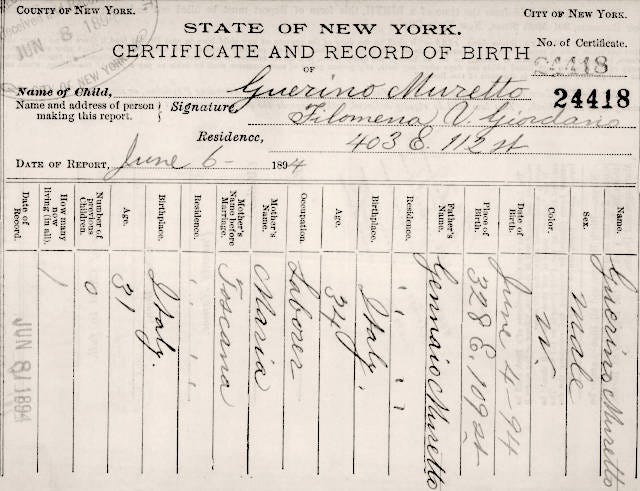 COUNTY OF NEW YORK.
CITY OF NEW YORK.
STATE OF NEW YORK.
CERTIFICATE AND RECORD OF BIRTH
OF
No. of Certificate.
24418
24418
Name of Child, Guerino Muretto
Name and address of person making this report. Signature, Filomena V. Giordano
Residence, 403 E. 112 st
DATE OF REPORT, June 6- 1894
JUN 8 18
OF NEW YORK
Name. Guerino Muretto
Sex. Male
Color. W.
Date of Birth. June 4-94
Place of Birth. 328 E. 109 st
Father's Name. Gennaio Muretto
Residence. " " "
Birthplace. Italy.
Age. 34
Occupation. Laborer
Mother's Name. Maria
Mother's Name before Marriage. Toscana
Residence. " " "
Birthplace. Italy.
Age. 31
Number of previous Children. 0
How many now living (in all). 1
Date of Record. JUN 8 1894